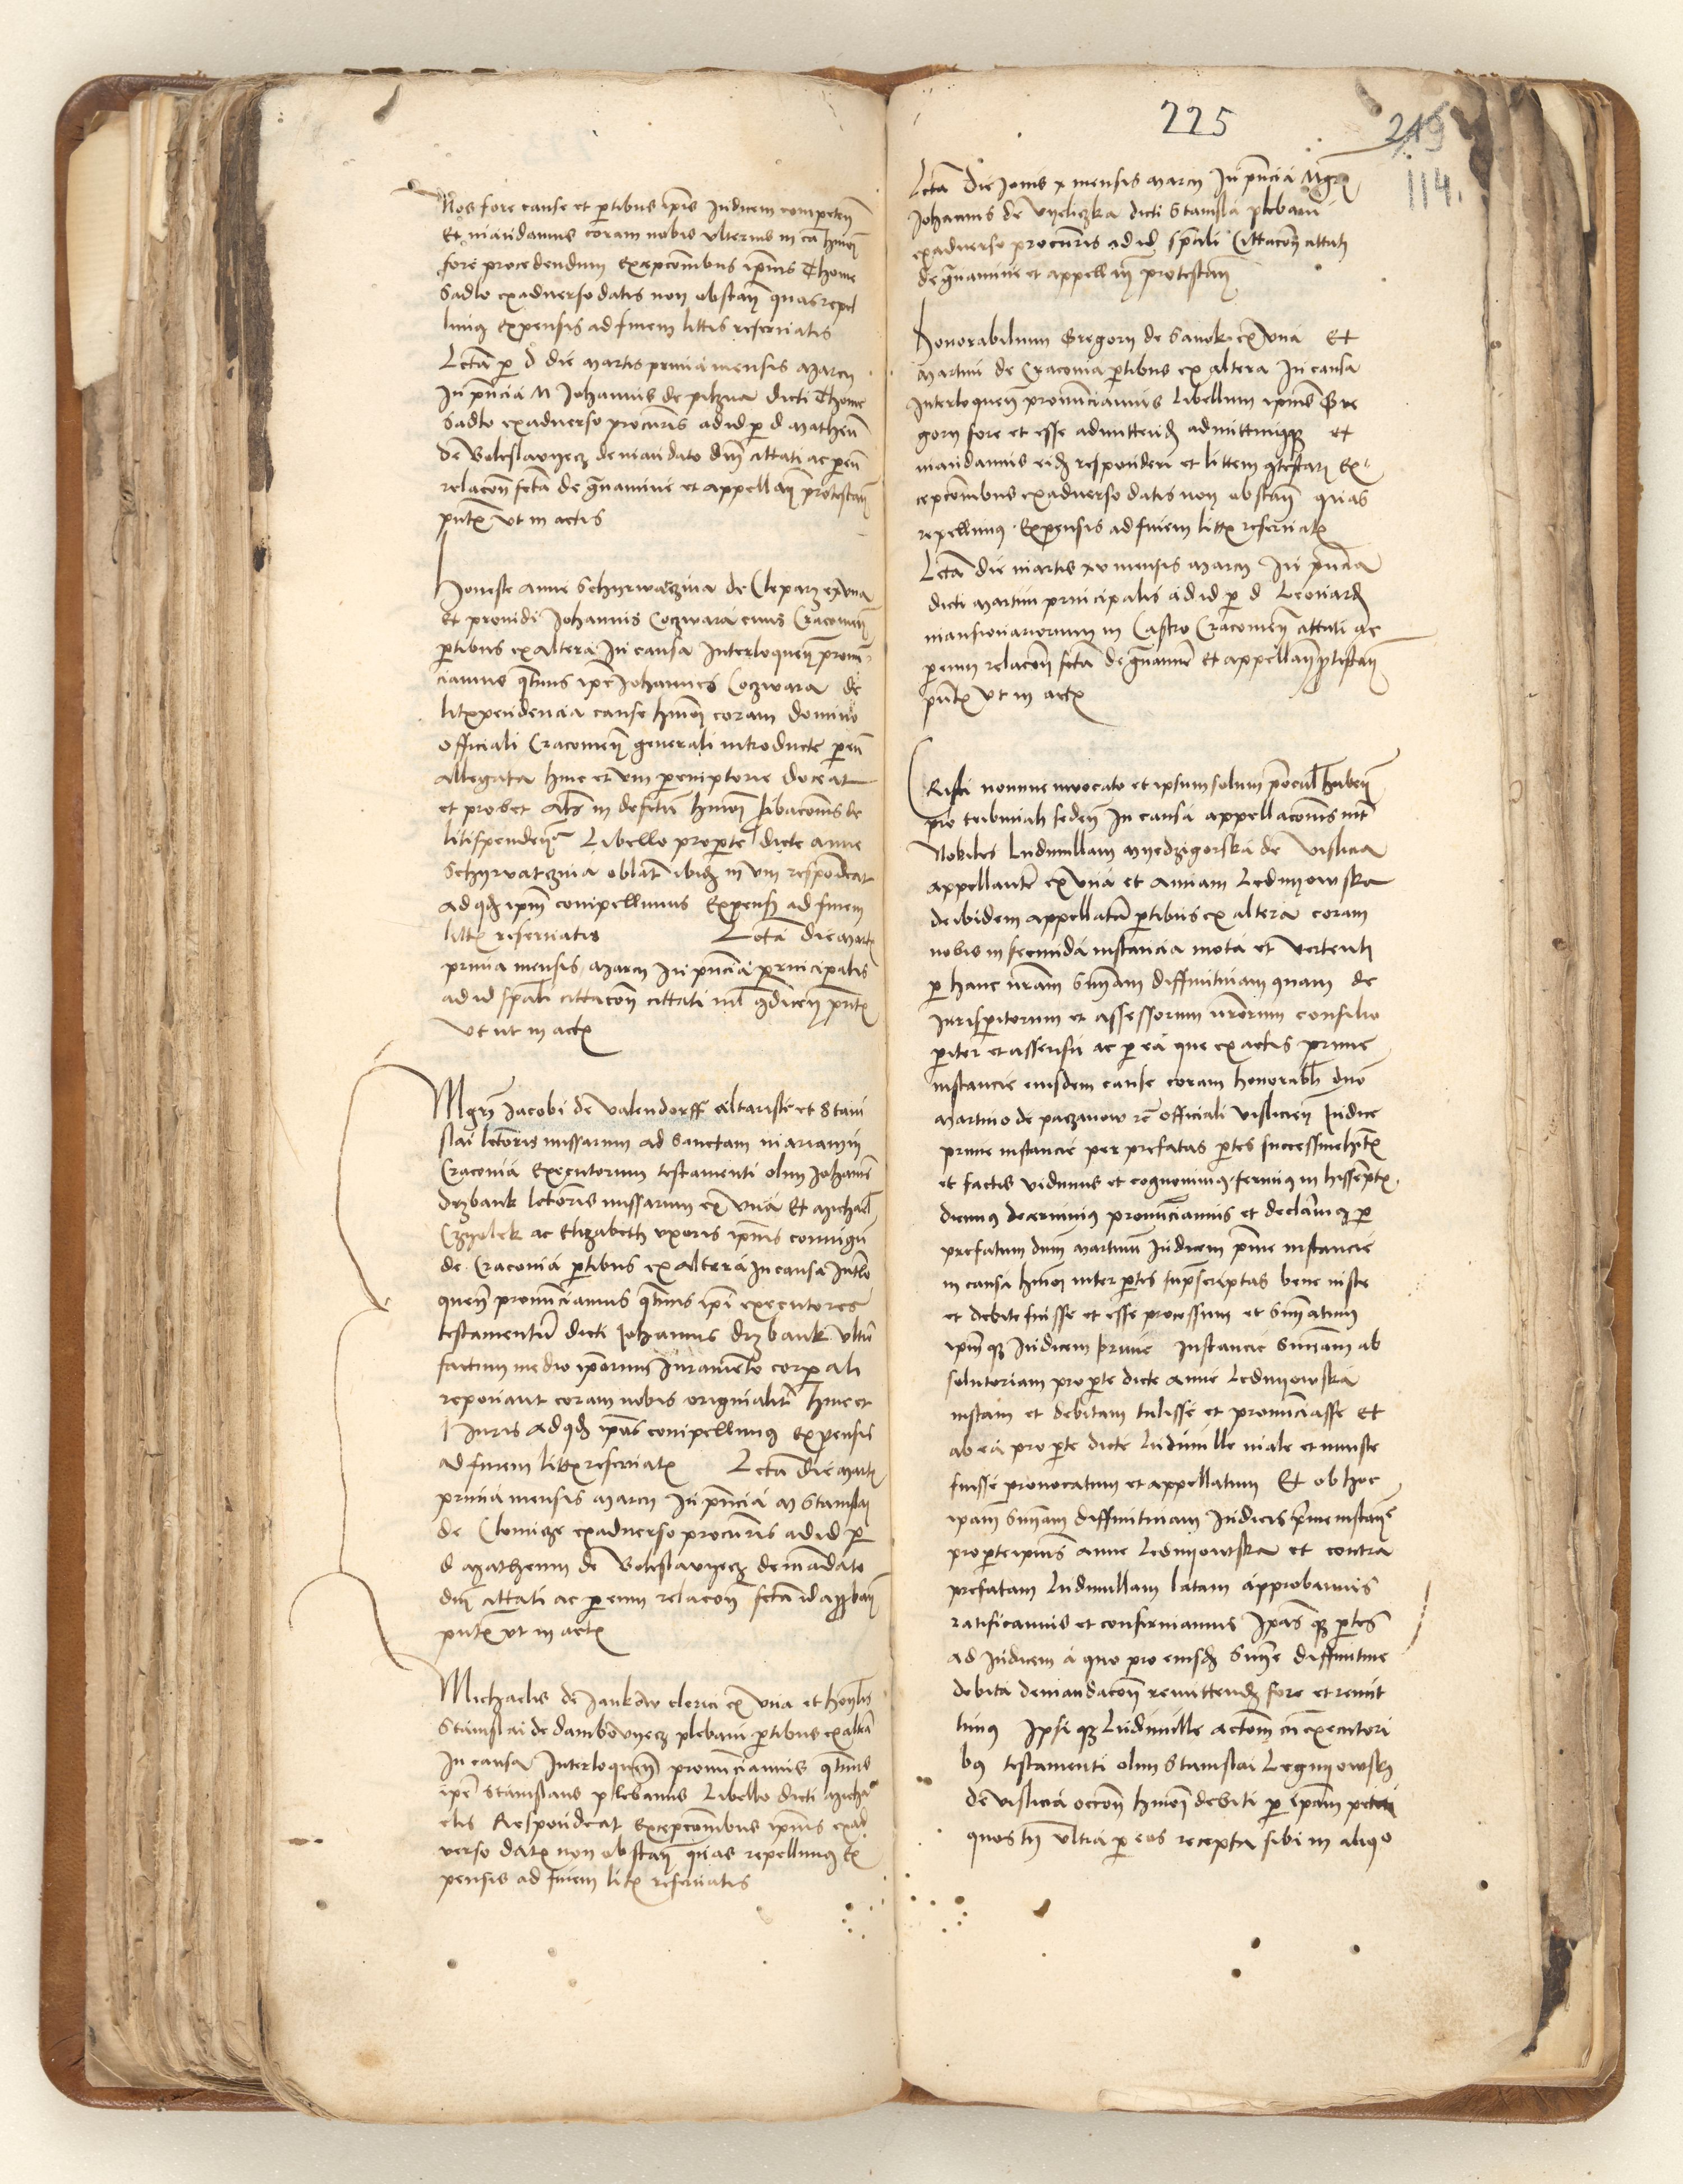 Nos fore cause et ptibus ipis Judicem competen
Et mandamus coram nobis ulterius in ca hmoi
fore procedendum Excepcombus ipius Thome
Sadlo exadverso datis non obstan quas repel
limus Expensis ad finem littis reservatis
Lcta p d die martis prima mensis marcy
In pncia M Johannis de pilzna dicti Thome
Sadlo exadverso procuris ad id p d Matheu
de Boleslavyecz de mandato dni cittati ac p eu
relacon fcta de gravamine et appellan protestan
pntx ut in actis
Honeste Anne Schyrwaczina de Cleparz ex una
Et providi Johannis Coczwara civis Cracovien
ptibus ex altera In causa Interloquen pronu
ciamus qtinus ipe Johannes Coczwara de
litxpendencia cause hmoi coram domino
Officiali Cracovien generali introducte p eu
allegata hinc et um peremptorie doceat
et probet Als in defctu hmoi pbacomis de
litispenden Libello pro pte dicte Anne
Schyrvaczina oblat ibid in um respondeat
ad qd ipm compellimus Expens ad finem
littx reservatis Lcta die martx
prima mensis marcy In pncia principalis
ad id spali cittacon cittati nil 9dicen pntx
ut ut in actx
Mgri Jacobi de Valendorff altariste et Stani
slai lectoris missarum ad Sanctam mariam in
Cracovia Executorum testamenti olim Johanis
drzbank lectoris missarum ex una Et Michael
Czyolek ac Elizabeth uxoris ipius coniugu
de Cracovia ptibus ex altera In causa Intlo
quen pronunciamus qtinus ipi executores
testamentu dicti Johannis drzbank ultu
factum medio ipsorum Iuramento corpali
reponant coram nobis originalit hinc et
Juris ad qd ipos compellimus Expensis
ad finem littx reservatx Lcta die martx
prima mensis marcy In pncia M Stanislai
de Clomicze exadverso procuris ad id p
d Matheum de Boleslavyecz de mandato
dni cittati ac p eum relacon fcta id appban
pntx ut in actx
Michaelis de Jankow clerici ex una et honbis
Stanislai de dambovyecz plebani ptibus ex alta
In causa Interloquen pronunciamus qtinus
ipe Stanislaus plebanus Libello dicti Micha
elis Respondeat Excepcombus ipius exad
verso datx non obstan quas repellimus Ex
pensis ad finem litx reservatis
225
219
114.
Lcta die Jovis x mensis marcy In pncia Mgri
Johannis de Vyeliczka dicti Stanislai plebani
exadverso procuris ad id spali Cittacon cittati
de gravamine et appellan protestan
Honorabilium Gregory de Sanok ex una Et
Martini de Cracovia ptibus ex altera In causa
Interloquen pronunciamus Libellum ipius Gre
gory fore et esse admittend admittimusq et
mandamus eid responderi et littem 9testari Ex
cepcombus exadverso datis non obstan quas
repellimus Expensis ad finem littx reservatx
Lcta die martis xv mensis marcy In pncia
dicti Martini principalis ad id p d Leonard
mansionariorum in Castro Cracovien cittati ac
p eum relacon fcta de gravamine et appellan ptestan
pntx ut in actx
Cristi nomine invocato et ipsum solum p ocul haben
pro tribunali seden In causa appellacomis int
Nobiles Ludmillam Myedzigorska de Vislicia
appellante ex una et Annam Ledmyowska
de ibidem appellata ptibus ex altera coram
nobis in secunda instancia mota et vertenti
p hanc nram Sniam diffinitivam quam de
Jurispitorum et assessorum nrorum consilio
piter et assensu ac p ea que ex actis prime
instancie eiusdem cause coram honorabli dno
Martino de paczanow re officiali Vislicien Judice
prime instancie per prefatas ptes successive hitx
et factis vidimus et cognovimus ferimus in his scriptx
dicimus decernimus pronunciamus et declaramus p
prefatum dnm Martinu Judicem pme instancie
in causa hmoi inter ptes suprascriptas bene iuste
et debite fuisse et esse processum et sniatum
ipmq Judicem prime Instancie Sniam ab
solutoriam pro pte dicte Anne Ledmyowska
iustam et debitam tulisse et pronunciasse Et
ab ea pro pte dicte Ludmille male et iniuste
fuisse provocatum et appellatum Et ob hoc
ipam Sniam diffinitivam Judicis prime instan
pro pte ipius Anne Ledmyowska et contra
prefatam Ludmillam latam approbamus
ratificamus et confirmamus Ipas q ptes
ad Judicem a quo pro eiusd Snie diffinitive
debita demandacon remittend fore et remit
timus Ipsi q Ludmille actom cu executori
bus testamenti olim Stanislai Legmyowsky
de Vislicia occon hmoi debiti p ipam petiti
quos tn ultra p eos recepta sibi in aliquo